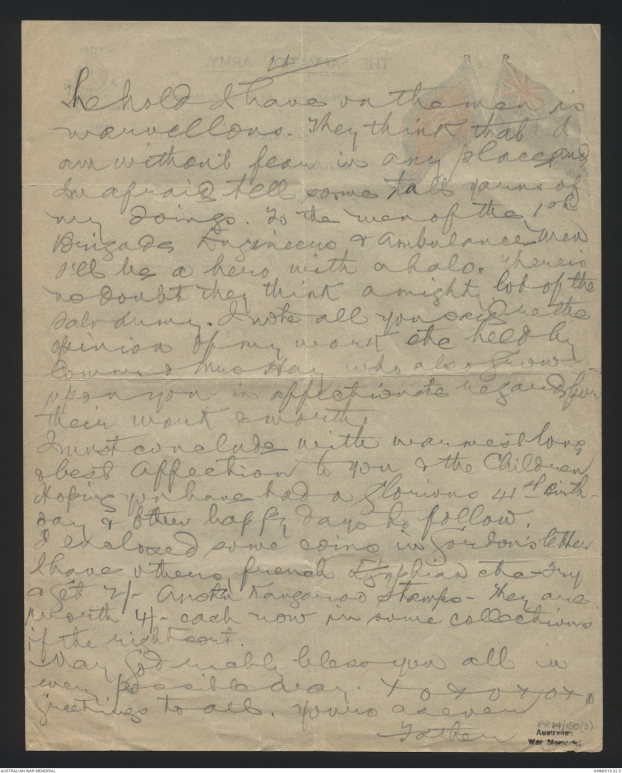 11
The hold I have on the men is
marvellous. They think that I
am without fear in any place and
Im afraid tell some tall yarns of
my doings. To the men of the 1st
Brigade Engineers & Ambulance Men
I'll be a hero with a halo. There is
no doubt they think a mighty lot of the
Salv Army. I note all you said re the
opinion of my work etc held by
Commr & Mrs Hay who also grow
upon you in affectionate regard for
their work & worth.
I must conclude with warmest love
& best affection to you & the Children
Hoping you have had a glorious 41st Birth-
day & other happy days to follow.
I enclosed some coins in Gordon's letter
I have others french Egyptian etc - Try
& get 2/- Kangaroo Stamps - They are
worth 4/- each now in some collections
if the right sort.
May God richly bless you all in
every possible way. X O X O X O X
greetings to all. Yours as ever
Father
Australian
War Memorial
AUSTRALIAN WAR MEMORIAL